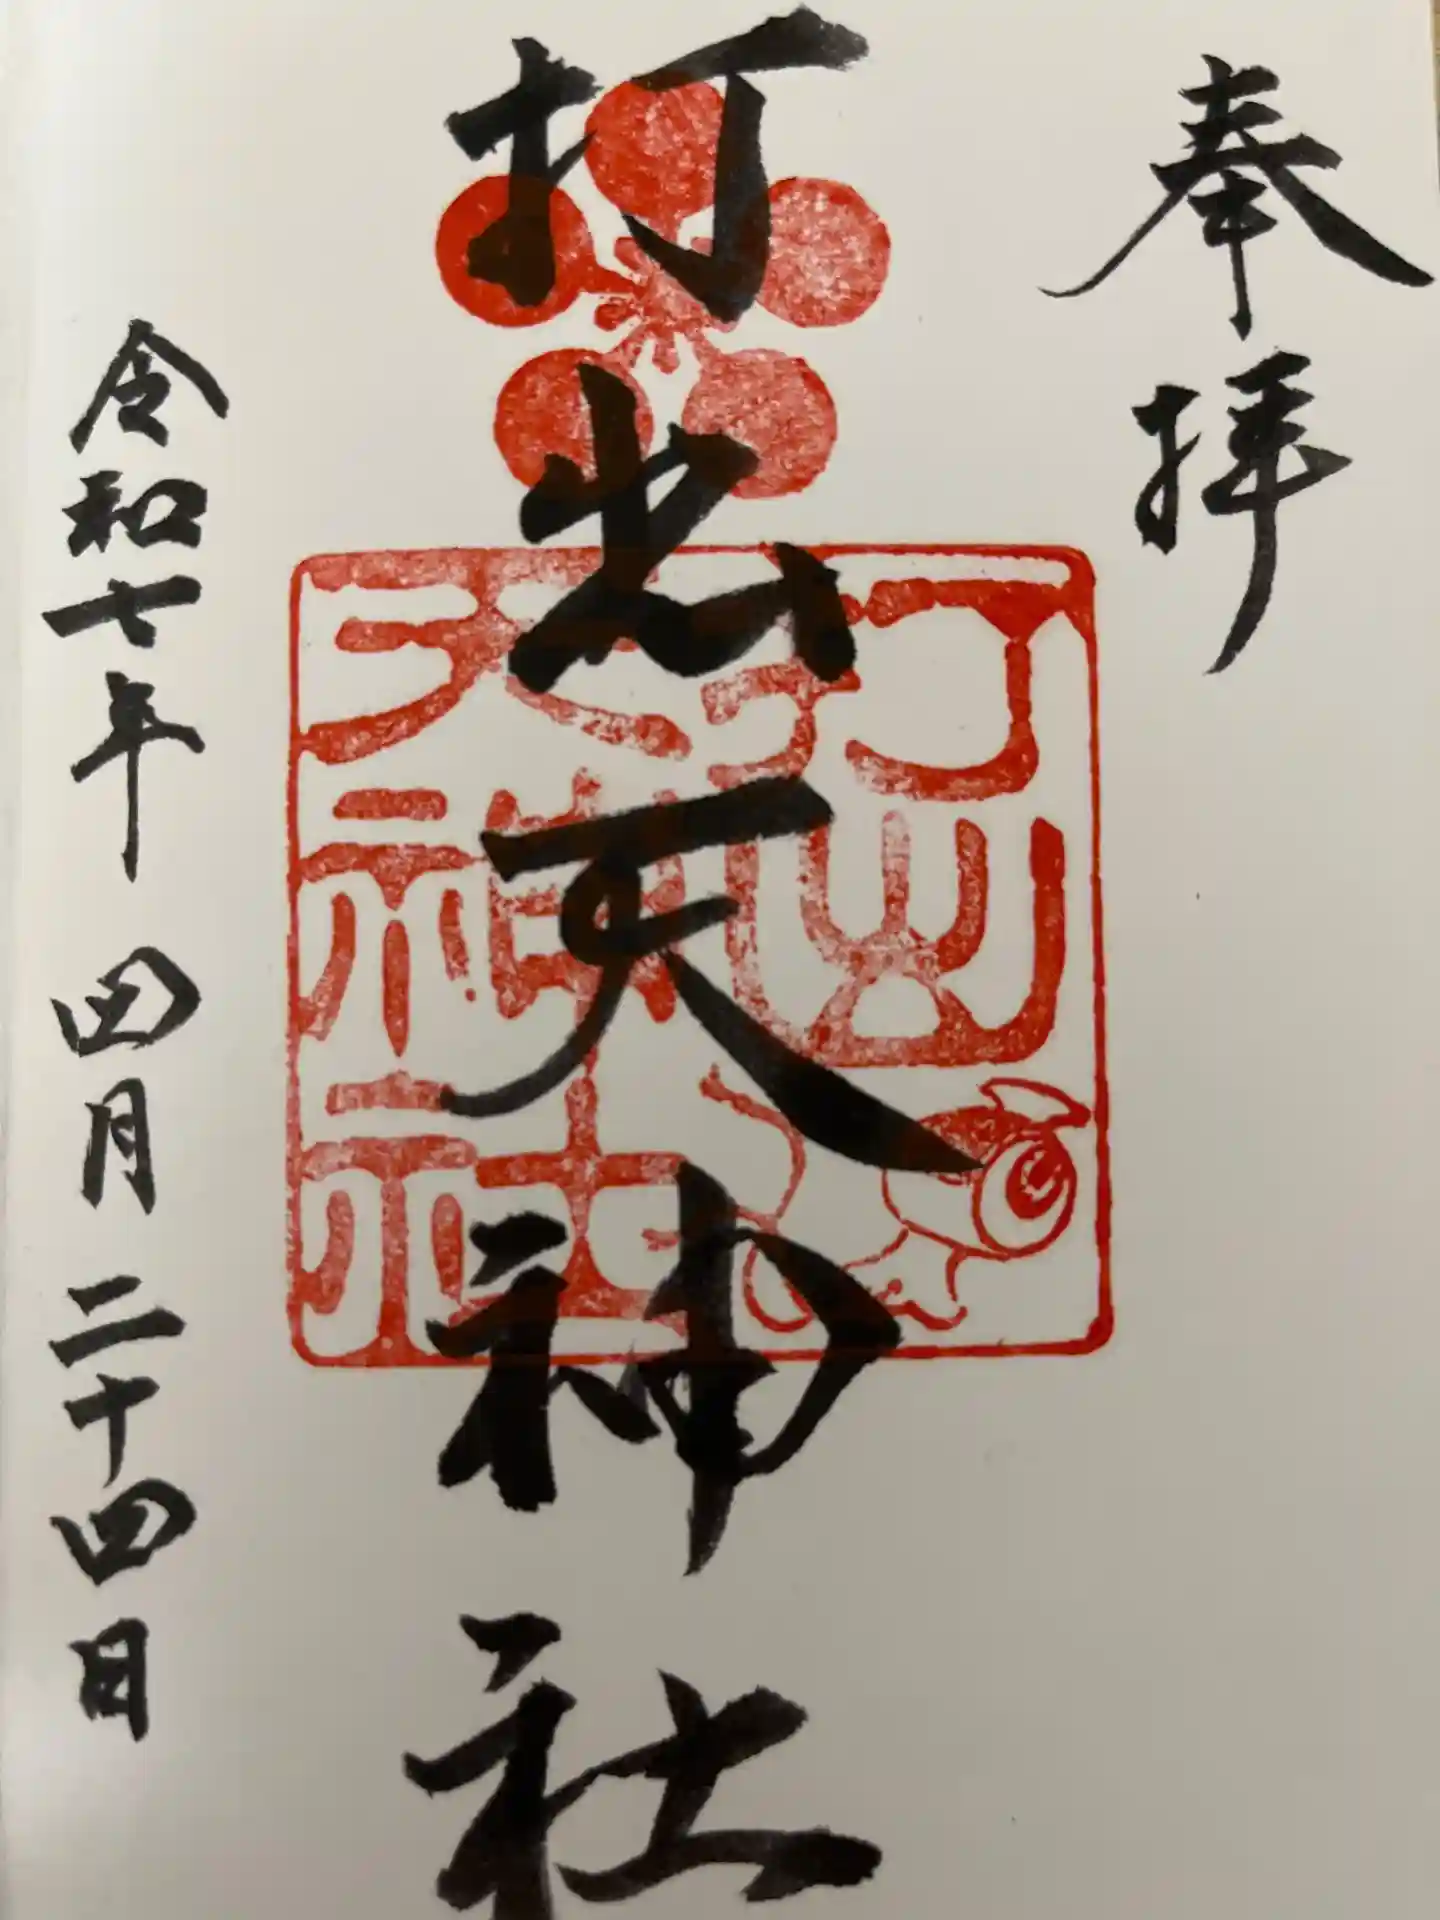 奉拝
打出天神社
打出天神社
令和七年 四月二十四日